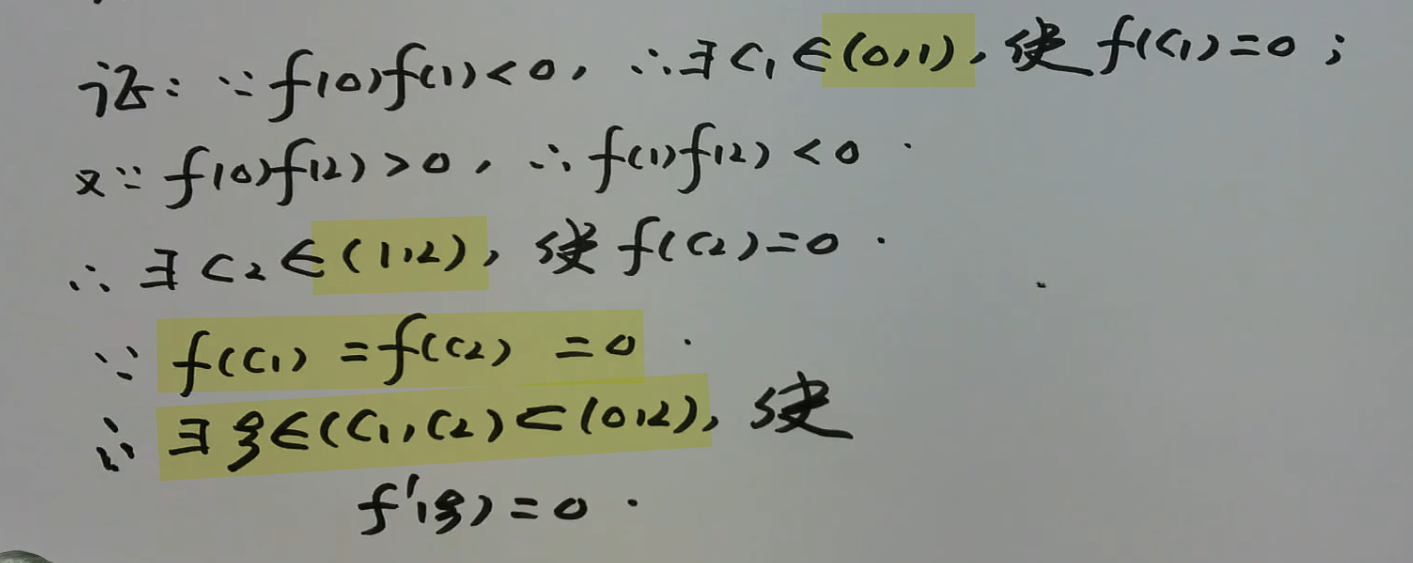 证：∵f(0)f(1)<0，∴∃C₁∈(0,1)，使f(C₁)=0；
又∵f(0)f(2)>0，∴f(1)f(2)<0.
∴∃C₂∈(1,2)，使f(C₂)=0.
∵f(C₁)=f(C₂)=0.
∴∃ξ∈(C₁,C₂)⊂(0,2)，使
f'(ξ)=0.